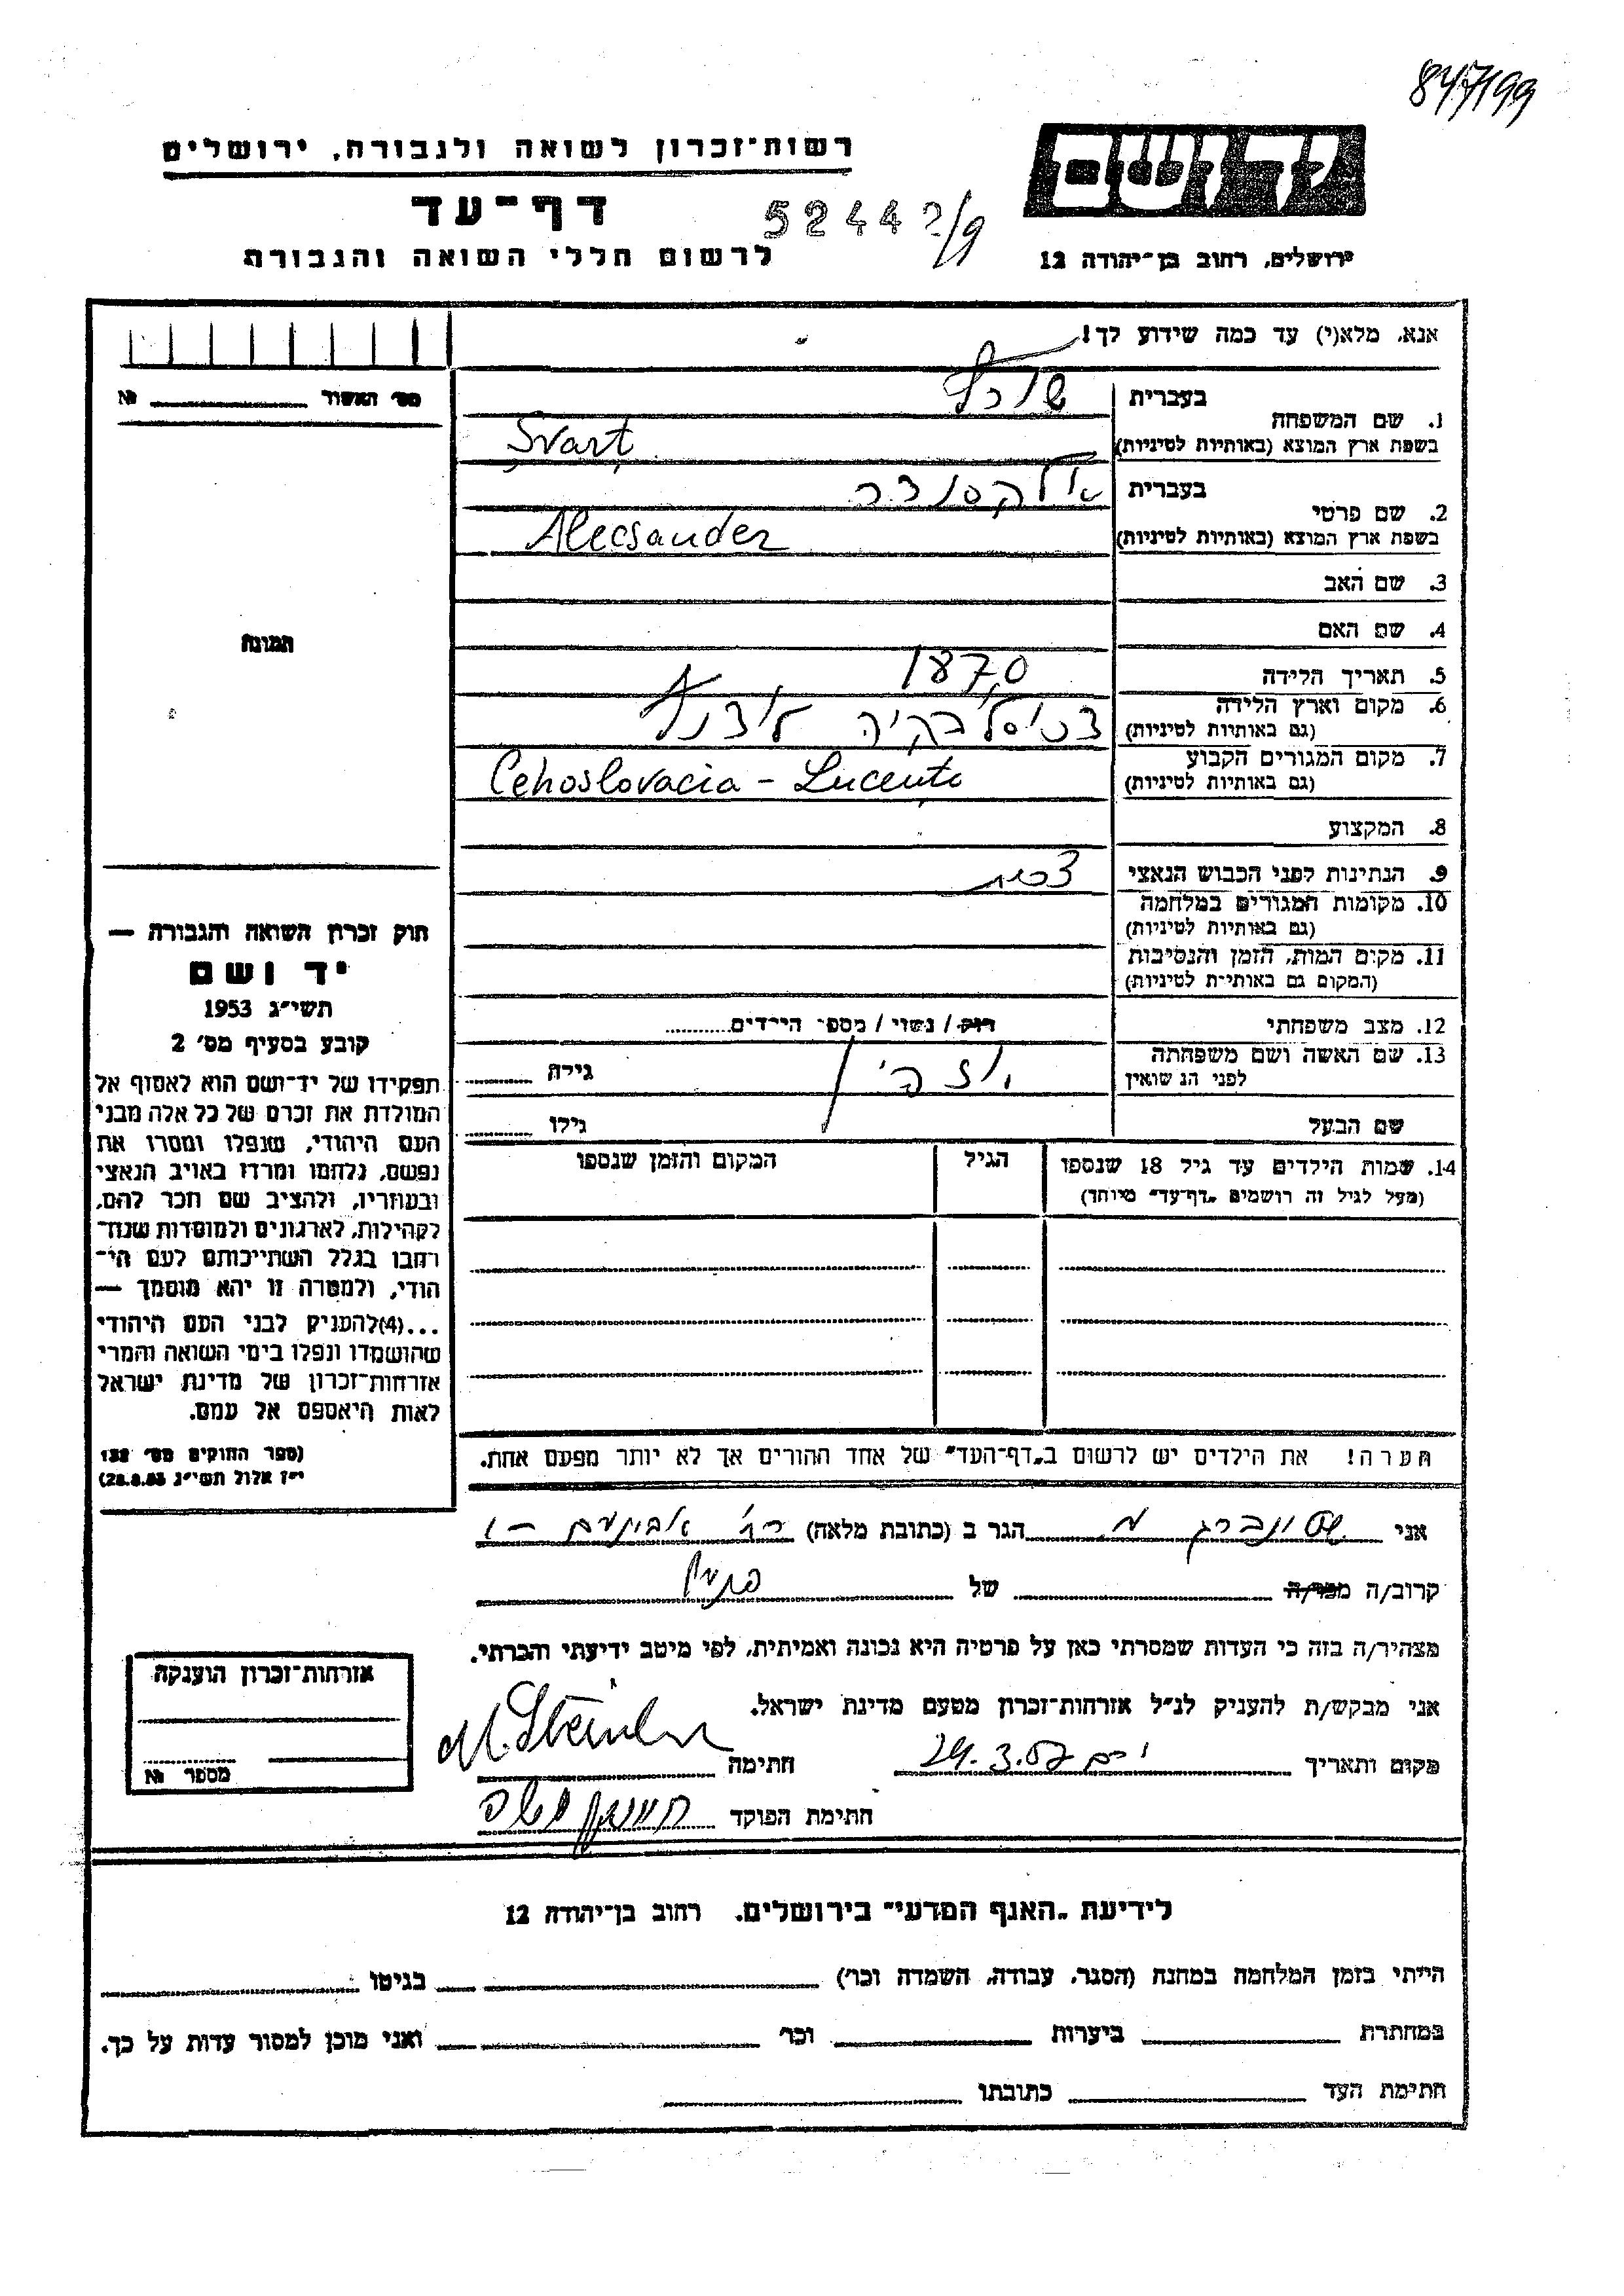 847199
רשות־זכרון לשואה ולגבורה, ירושלים
יד ושם
דף־עד
52442/9
לרשום חללי השואה והגבורה
ירושלים, רחוב בן־יהודה 12
אנא, מלא(י) עד כמה שידוע לך!
מס׳ האשור № 
1. שם המשפחה
בעברית
בשפת ארץ המוצא (באותיות לטיניות)
Şvarţ
2. שם פרטי
בעברית אלקסנדר
בשפת ארץ המוצא (באותיות לטיניות)
Alecsander
3. שם האב
4. שם האם
תמונה
5. תאריך הלידה 1870
6. מקום וארץ הלידה
(גם באותיות לטיניות)
7. מקום המגורים הקבוע
(גם באותיות לטיניות)
Cehoslovacia - Lucenţo
8. המקצוע
9. הנתינות לפני הכבוש הנאצי צכית
10. מקומות המגורים במלחמה
(גם באותיות לטיניות)
11. מקום המות, הזמן והנסיבות
(המקום גם באותיות לטיניות)
12. מצב משפחתי רווק / נשוי / מספר הילדים
13. שם האשה ושם משפחתה
לפני הנשואין
גילה
שם הבעל גילו
14. שמות הילדים עד גיל 18 שנספו
(מעל לגיל זה רושמים „דף־עד” מיוחד)
הגיל
המקום והזמן שנספו
הערה! את הילדים יש לרשום ב„דף־העד” של אחד ההורים אך לא יותר מפעם אחת.
חוק זכרון השואה והגבורה —
יד ושם
תשי״ג 1953
קובע בסעיף מס׳ 2
תפקידו של יד־ושם הוא לאסוף אל
המולדת את זכרם של כל אלה מבני
העם היהודי, שנפלו ומסרו את
נפשם, נלחמו ומרדו באויב הנאצי
ובעוזריו, ולהציב שם וזכר להם,
לקהילות, לארגונים ולמוסדות שנח־
רבו בגלל השתייכותם לעם הי־
הודי, ולמטרה זו יהא מוסמך —
...(4)להעניק לבני העם היהודי
שהושמדו ונפלו בימי השואה והמרי
אזרחות־זכרון של מדינת ישראל
לאות היאספם אל עמם.
(ספר החוקים מס׳ 132
י״ז אלול תשי״ג 28.8.53)
אני הגר ב (כתובת מלאה)
קרוב/ה מכר/ה של
מצהיר/ה בזה כי העדות שמסרתי כאן על פרטיה היא נכונה ואמיתית, לפי מיטב ידיעתי והכרתי.
אני מבקש/ת להעניק לנ״ל אזרחות־זכרון מטעם מדינת ישראל.
מקום ותאריך חתימה
חתימת הפוקד
אזרחות־זכרון הוענקה
מספר №
לידיעת „האגף המדעי” בירושלים, רחוב בן־יהודה 12
הייתי בזמן המלחמה במחנה (הסגר, עבודה, השמדה וכו׳) בגיטו
במחתרת ביערות וכו׳ ואני מוכן למסור עדות על כך.
חתימת העד כתובתו